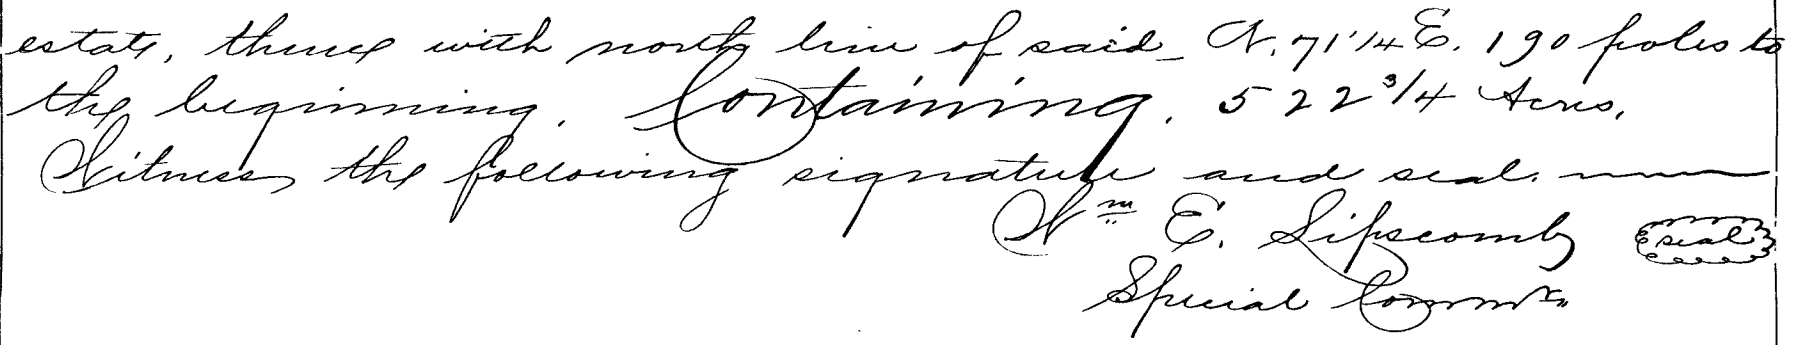 estate, thence with north line of said N. 71 1/4 E. 190 poles to
the beginning. Containing. 522 3/4 Acres.
Witness the following signature and seal.
Wm E. Lipscomb seal
Special Commr